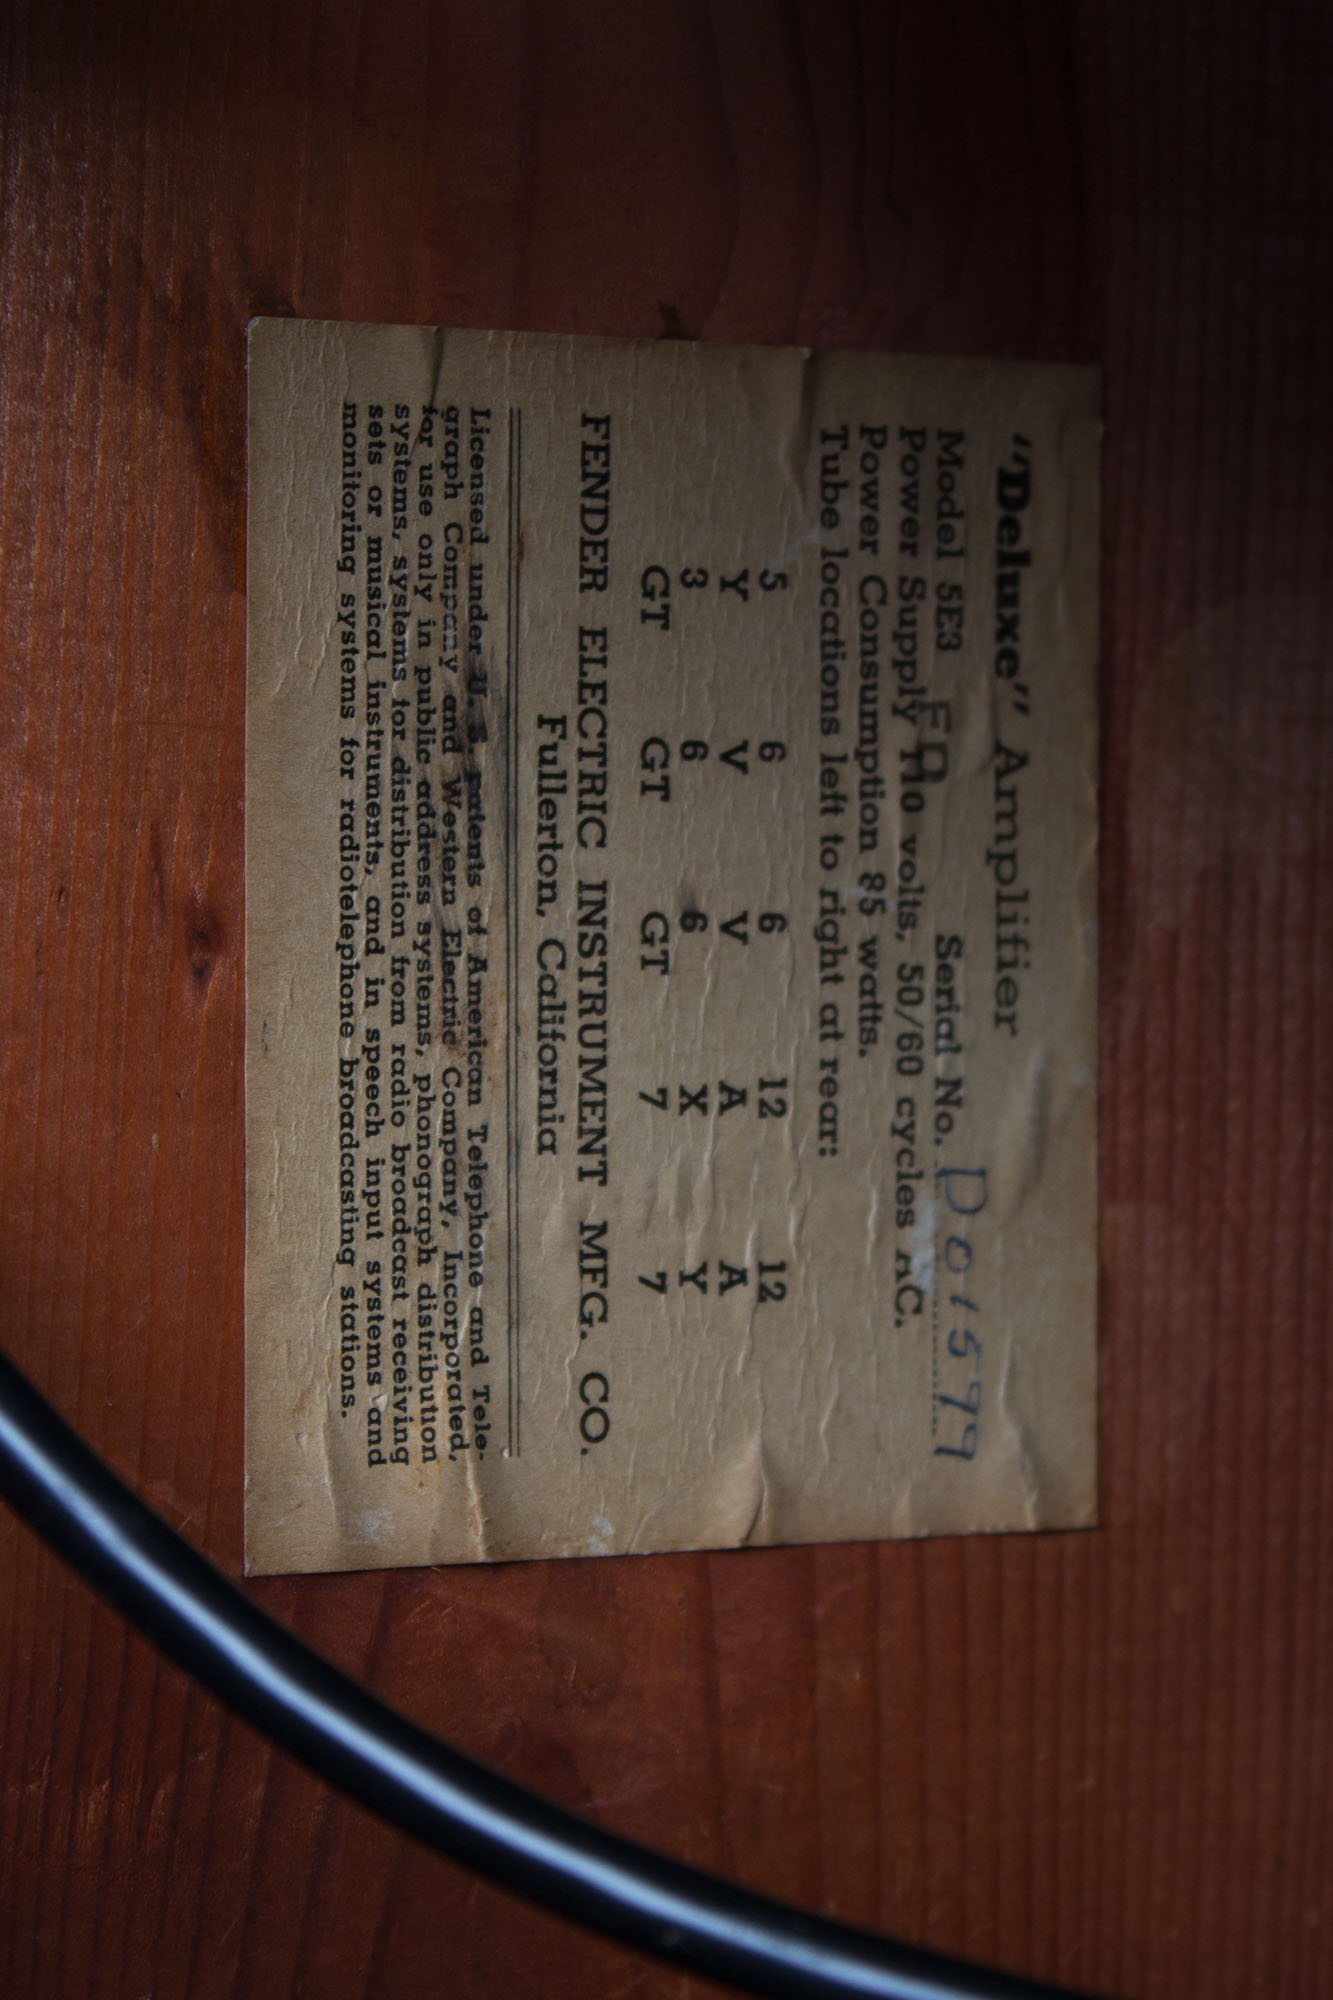 "Deluxe" Amplifier
Model 5E3 FD Serial No. D01579
Power Supply 110 volts, 50/60 cycles AC.
Power Consumption 85 watts.
Tube locations left to right at rear:
5 6 6 12 12
Y V V A A
3 6 6 X Y
GT GT GT 7 7
FENDER ELECTRIC INSTRUMENT MFG. CO.
Fullerton, California
Licensed under U. S. patents of American Telephone and Tele-
graph Company and Western Electric Company, Incorporated,
for use only in public address systems, phonograph distribution
systems, systems for distribution from radio broadcast receiving
sets or musical instruments, and in speech input systems and
monitoring systems for radiotelephone broadcasting stations.